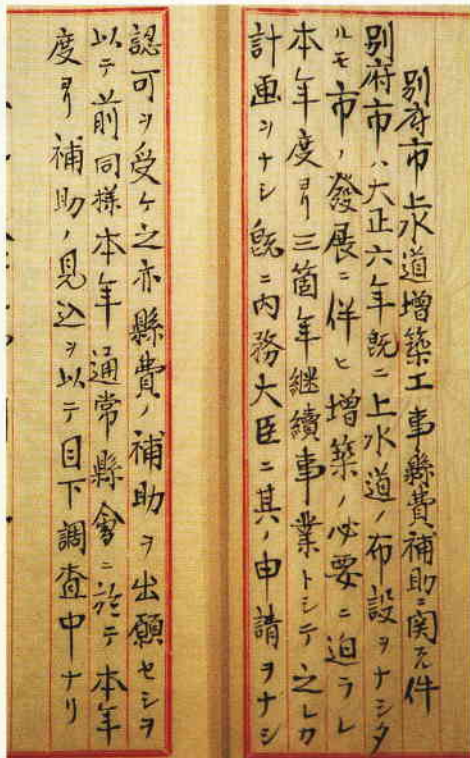 別府市上水道增築工事縣費補助ニ関スル件
別府市ハ大正六年既ニ上水道ノ布設ヲナシタ
ルモ市ノ發展ニ伴ヒ增築ノ必要ニ迫ラレ
本年度ヨリ三箇年継續事業トシテ之レカ
計画ヲナシ既ニ内務大臣ニ其ノ申請ヲナシ
認可ヲ受ケ之亦縣費ノ補助ヲ出願セシヲ
以テ前同様本年通常縣會ニ於テ本年
度ヨリ補助ノ見込ヲ以テ目下調査中ナリ